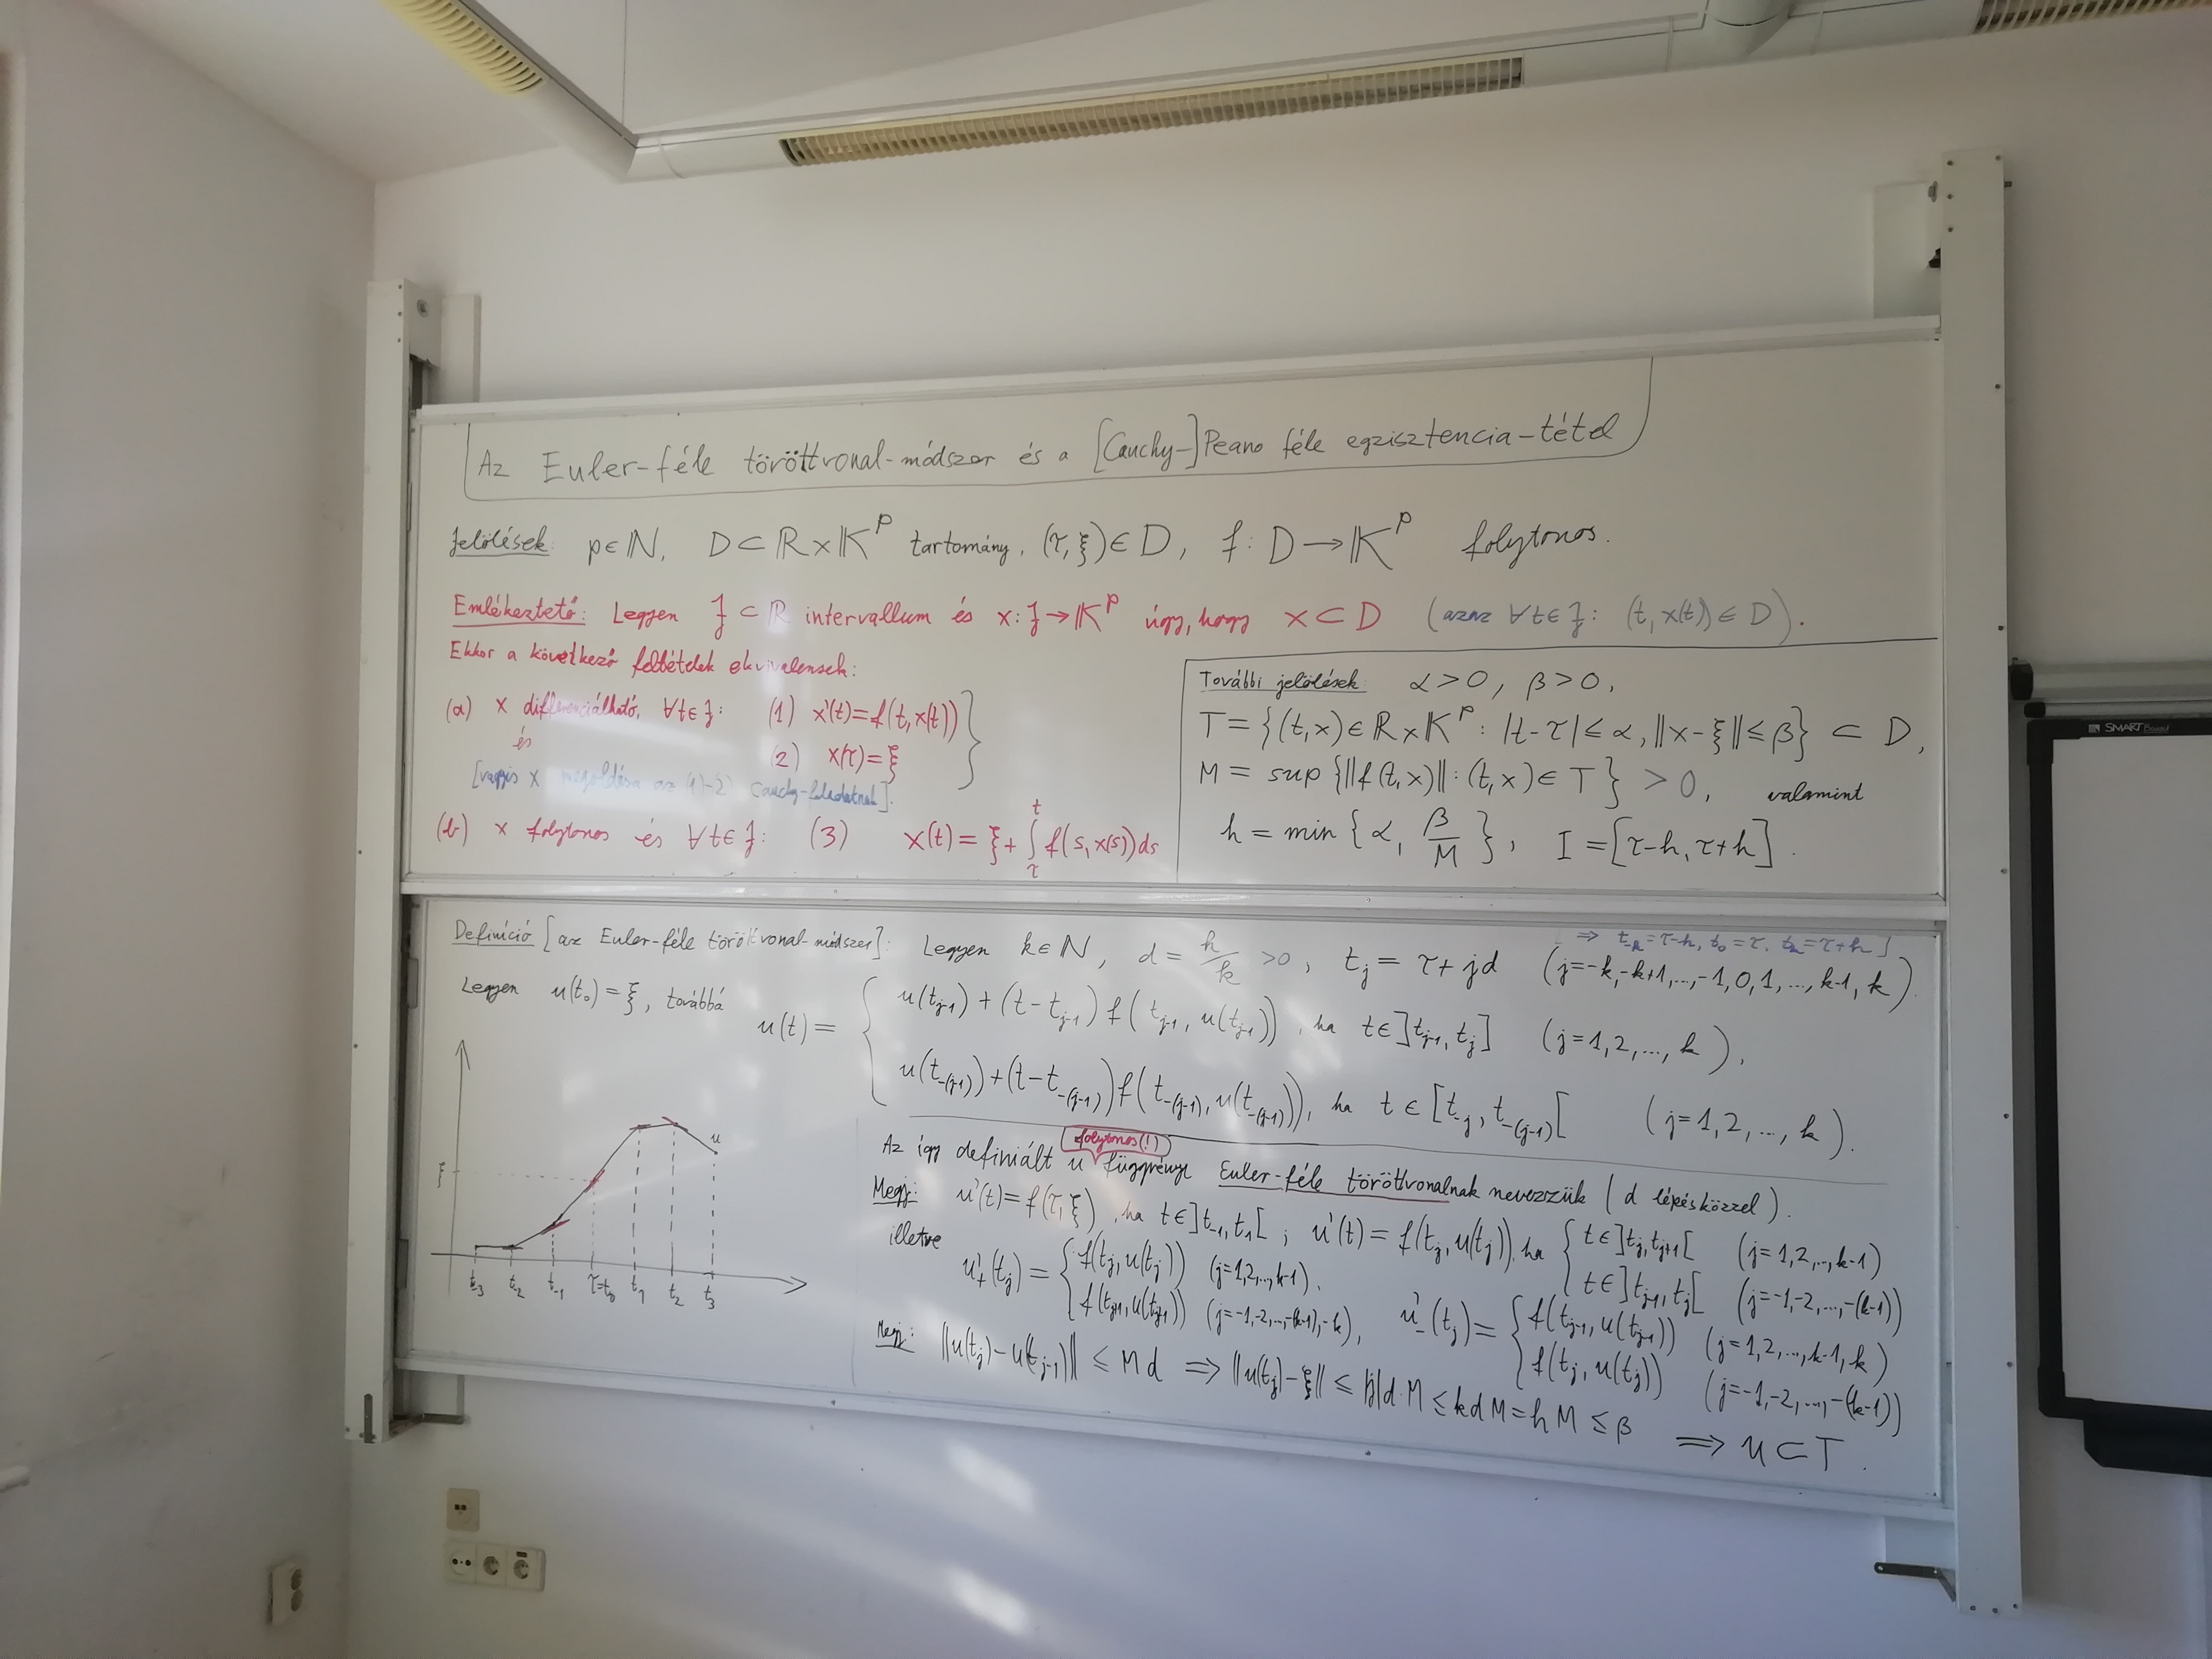 Az Euler-féle töröttvonal-módszer és a [Cauchy-]Peano féle egzisztencia-tétel
Jelölések: p∈ℕ, D⊂ℝ×𝕂^p tartomány, (τ,ξ)∈D, f: D→𝕂^p folytonos.
Emlékeztető: Legyen J⊂ℝ intervallum és x: J→𝕂^p úgy, hogy x⊂D (azaz ∀t∈J: (t,x(t))∈D).
Ekkor a következő feltételek ekvivalensek:
(a) x differenciálható, ∀t∈J: (1) x'(t)=f(t,x(t))
és (2) x(τ)=ξ }
[vagyis x megoldása az (1)-(2) Cauchy-feladatnak].
(b) x folytonos és ∀t∈J: (3) x(t)=ξ+∫_τ^t f(s,x(s))ds
További jelölések: α>0, β>0,
T={(t,x)∈ℝ×𝕂^p: |t-τ|≤α, ‖x-ξ‖≤β} ⊂ D,
M = sup{‖f(t,x)‖: (t,x)∈T} > 0, valamint
h = min{α, β/M}, I=[τ-h, τ+h].
Definíció [az Euler-féle töröttvonal-módszer]: Legyen k∈ℕ, d=h/k>0, t_j=τ+jd (j=-k,-k+1,...,-1,0,1,...,k-1,k).
[⇒ t_-k=τ-h, t_0=τ, t_k=τ+h]
Legyen u(t_0)=ξ, továbbá
u(t)= { u(t_{j-1})+(t-t_{j-1})f(t_{j-1},u(t_{j-1})), ha t∈]t_{j-1},t_j] (j=1,2,...,k),
u(t_{-(j-1)})+(t-t_{-(j-1)})f(t_{-(j-1)},u(t_{-(j-1)})), ha t∈[t_{-j},t_{-(j-1)}[ (j=1,2,...,k).
ξ
u
t_3 t_-2 t_-1 τ=t_0 t_1 t_2 t_3
folytonos(!)
Az így definiált u függvényt Euler-féle töröttvonalnak nevezzük (d lépésközzel).
Megj: u'(t)=f(τ,ξ), ha t∈]t_-1,t_1[; u'(t)=f(t_j,u(t_j)), ha { t∈]t_j,t_{j+1}[ (j=1,2,...,k-1)
t∈]t_{j-1},t_j[ (j=-1,-2,...,-(k-1))
illetve u'_+(t_j)= { f(t_j,u(t_j)) (j=1,2,...,k-1),
f(t_{j+1},u(t_{j+1})) (j=-1,-2,...,-(k-1),-k),
u'_-(t_j)= { f(t_{j-1},u(t_{j-1})) (j=1,2,...,k-1,k)
f(t_j,u(t_j)) (j=-1,-2,...,-(k-1))
Megj: ‖u(t_j)-u(t_{j-1})‖ ≤ Md ⇒ ‖u(t_j)-ξ‖ ≤ |j|d·M ≤ kdM=hM ≤ β ⇒ u⊂T.
SMART Board